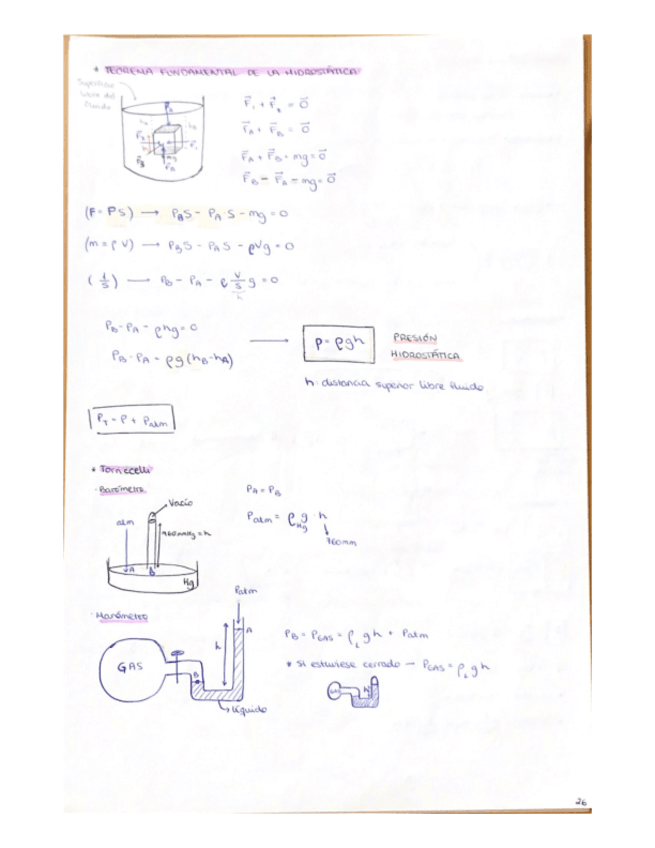 * TEOREMA FUNDAMENTAL DE LA HIDROSTÁTICA
Superficie
libre del
fluido
F⃗₁ + F⃗₂ = 0⃗
F⃗A + F⃗B = 0⃗
F⃗A + F⃗B - mg = 0⃗
F⃗B - F⃗A - mg = 0⃗
(F = P S) → PBS - PA S - mg = 0
(m = ρ V) → PBS - PAS - ρVg = 0
(1/S) — PB - PA - ρ V/S g = 0
h
PB - PA - ρhg = 0
PB - PA = ρg (hB - hA)
P = ρgh
PRESIÓN
HIDROSTÁTICA
h: distancia superior libre fluido
PT = P + Patm
* Torricelli
· Barómetro
Vacío
atm
760mmHg = h
A
B
Hg
PA = PB
Patm = ρHg g · h
760mm
· Manómetro
Patm
A
h
GAS
B
Líquido
PB = PGAS = ρL g h + Patm
* Si estuviese cerrado — PGAS = ρL g h
h
26